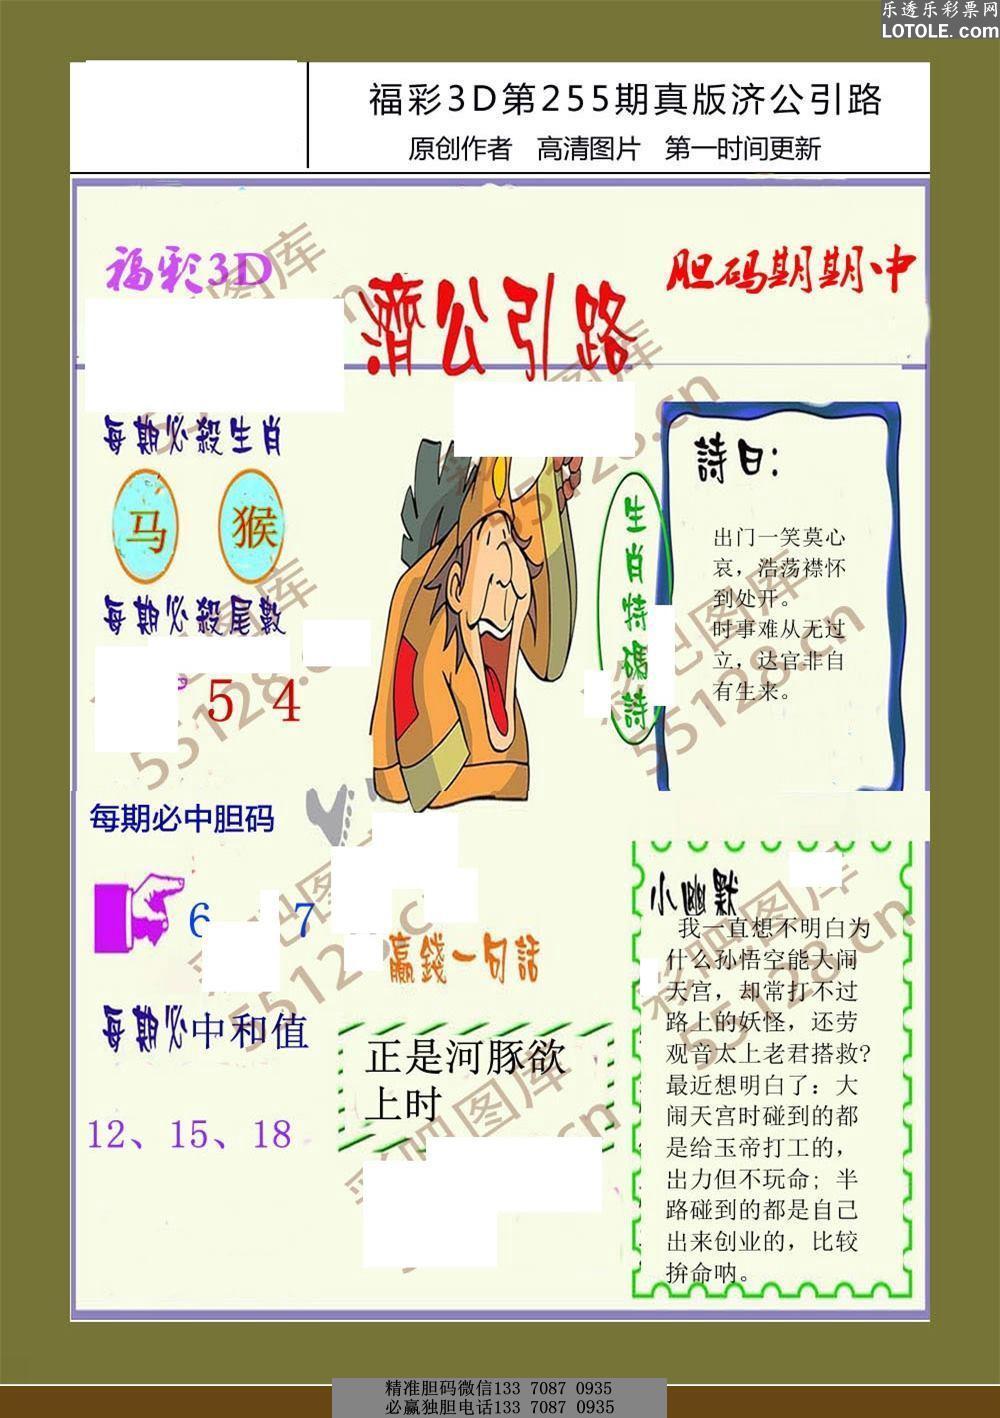 乐透乐彩票网
LOTOLE.com
福彩3D第255期真版济公引路
原创作者 高清图片 第一时间更新
福彩3D
濟公引路
胆码期期中
每期必殺生肖
马 猴
每期必殺尾數
5 4
生肖特碼詩
詩曰：
出门一笑莫心
哀，浩荡襟怀
到处开。
时事难从无过
立，达官非自
有生来。
每期必中胆码
6 7
每期必中和值
12、15、18
贏錢一句話
正是河豚欲
上时
小幽默
我一直想不明白为
什么孙悟空能大闹
天宫，却常打不过
路上的妖怪，还劳
观音太上老君搭救?
最近想明白了：大
闹天宫时碰到的都
是给玉帝打工的，
出力但不玩命；半
路碰到的都是自己
出来创业的，比较
拚命呐。
彩吧图库
55128.cn
精准胆码微信133 7087 0935
必赢独胆电话133 7087 0935